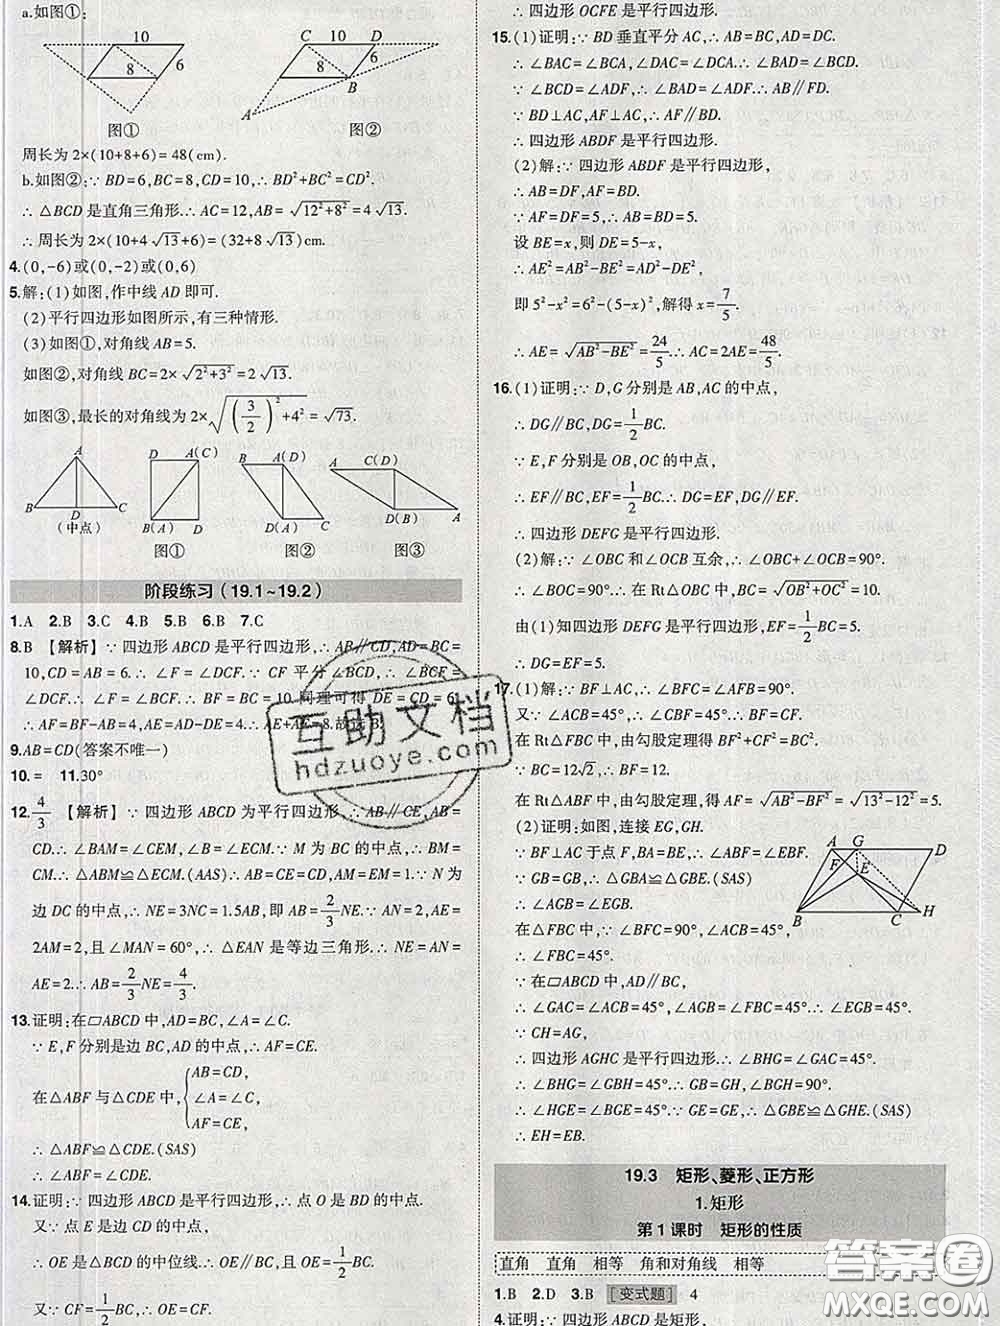 a.如图①:
10
8
6
图①
C
10
D
8
6
B
A
图②
周长为 2×(10+8+6)=48(cm).
b.如图②:∵ BD=6,BC=8,CD=10,∴ BD²+BC²=CD².
∴ △BCD 是直角三角形.∴ AC=12,AB=√(12²+8²)=4√13.
∴ 周长为 2×(10+4√13+6)=(32+8√13)(cm).
4.(0,-6)或(0,-2)或(0,6)
5.解:(1)如图,作中线 AD 即可.
(2)平行四边形如图所示,有三种情形.
(3)如图①,对角线 AB=5.
如图②,对角线 BC=2×√(2²+3²)=2√13.
如图③,最长的对角线为 2×√((3/2)²+4²)=√73.
A
B
D
C
(中点)
D
A(C)
B(A)
D
图①
B
A(D)
D(A)
C
图②
C(D)
D(B)
A
图③
阶段练习(19.1~19.2)
1.A 2.B 3.C 4.B 5.B 6.B 7.C
8.B 【解析】∵ 四边形 ABCD 是平行四边形,∴ AB∥CD,AD=BC=
10,CD=AB=6.∴ ∠F=∠DCF.∵ CF 平分∠BCD,∴ ∠BCF=
∠DCF.∴ ∠F=∠BCF.∴ BF=BC=10.同理可得 DE=CD=6.
∴ AF=BF-AB=4,AE=AD-DE=4.∴ AE+AF=8.故选 B.
9.AB=CD(答案不唯一)
10.= 11.30°
12.4/3 【解析】∵ 四边形 ABCD 为平行四边形,∴ AB∥CE,AB=
CD.∴ ∠BAM=∠CEM,∠B=∠ECM.∵ M 为 BC 的中点,∴ BM=
CM.∴ △ABM≌△ECM.(AAS)∴ AB=CE=CD,AM=EM.∵ N 为
边 DC 的中点,∴ NE=3NC=1.5AB,即 AB=2/3NE.∵ AN=2,AE=
2AM=2,且∠MAN=60°,∴ △EAN 是等边三角形.∴ NE=AN=
AE=2.∴ AB=2/3NE=4/3.
13.证明:在▱ABCD 中,AD=BC,∠A=∠C.
∵ E,F 分别是边 BC,AD 的中点,∴ AF=CE.
在△ABF 与△CDE 中,{AB=CD,
∠A=∠C,
AF=CE,
∴ △ABF≌△CDE.(SAS)
14.证明:∵ 四边形 ABCD 是平行四边形,∴ 点 O 是 BD 的中点.
又∵ 点 E 是边 CD 的中点,
∴ OE 是△BCD 的中位线.∴ OE∥BC,且 OE=1/2BC.
又∵ CF=1/2BC,∴ OE=CF.
∴ 四边形 OCFE 是平行四边形.
15.(1)证明:∵ BD 垂直平分 AC,∴ AB=BC,AD=DC.
∴ ∠BAC=∠BCA,∠DAC=∠DCA.∴ ∠BAD=∠BCD.
∵ ∠BCD=∠ADF,∴ ∠BAD=∠ADF.∴ AB∥FD.
∵ BD⊥AC,AF⊥AC,∴ AF∥BD.
∴ 四边形 ABDF 是平行四边形.
(2)解:∵ 四边形 ABDF 是平行四边形,
∴ AB=DF,AF=BD.
∵ AF=DF=5,∴ AB=BD=5.
设 BE=x,则 DE=5-x,
∴ AE²=AB²-BE²=AD²-DE²,
即 5²-x²=6²-(5-x)²,解得 x=7/5.
∴ AE=√(AB²-BE²)=24/5.∴ AC=2AE=48/5.
16.(1)证明:∵ D,G 分别是 AB,AC 的中点,
∴ DG∥BC,DG=1/2BC.
∵ E,F 分别是 OB,OC 的中点,
∴ EF∥BC,EF=1/2BC.∴ DG=EF,DG∥EF.
∴ 四边形 DEFG 是平行四边形.
(2)解:∵ ∠OBC 和∠OCB 互余,∴ ∠OBC+∠OCB=90°.
∴ ∠BOC=90°.∴ 在 Rt△OBC 中,BC=√(OB²+OC²)=10.
由(1)知四边形 DEFG 是平行四边形,EF=1/2BC=5,
∴ DG=EF=5.
17.(1)解:∵ BF⊥AC,∴ ∠BFC=∠AFB=90°.
又∵ ∠ACB=45°,∴ ∠CBF=∠ACB=45°.∴ BF=CF.
在 Rt△FBC 中,由勾股定理得 BF²+CF²=BC².
∵ BC=12√2,∴ BF=12.
在 Rt△ABF 中,由勾股定理,得 AF=√(AB²-BF²)=√(13²-12²)=5.
(2)证明:如图,连接 EG,GH.
∵ BF⊥AF 于点 F,BA=BE,∴ ∠ABF=∠EBF.
∵ GB=GB,∴ △GBA≌△GBE.(SAS)
∴ ∠AGB=∠EGB.
在△FBC 中,∵ ∠BFC=90°,∠ACB=45°,
∴ ∠FBC=45°.
∵ 在▱ABCD 中,AD∥BC,
∴ ∠GAC=∠ACB=45°,∠AGB=∠FBC=45°.∴ ∠EGB=45°.
∵ CH=AG,
∴ 四边形 AGHC 是平行四边形.∴ ∠BHG=∠GAC=45°.
∴ ∠BHG=∠GBH=45°.∴ GB=GH,∠BGH=90°.
∴ ∠HGE=∠BGE=45°.∵ GE=GE,∴ △GBE≌△GHE.(SAS)
∴ EH=EB.
A
G
D
F
E
B
C
H
19.3 矩形、菱形、正方形
1.矩形
第 1 课时 矩形的性质
直角 直角 相等 角和对角线 相等
1.B 2.D 3.B [变式题] 4
4.证明:∵ 四边形 ABCD 是矩形,
互助文档
hdzuoye.com
答案圈
MXQE.COM